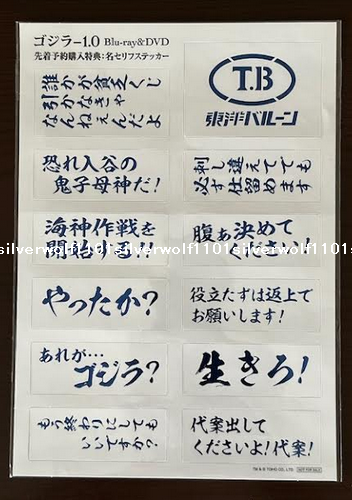 ゴジラ-1.0 Blu-ray&DVD
先着予約購入特典：名セリフステッカー
誰かが貧乏くじ
引かなきゃ
なんねぇんだよ
T.B
東洋バルーン
恐れ入谷の
鬼子母神だ!
刺し違えてでも
必ず仕留めます
海神作戦を
腹ぁ決めて
silverwolf1101silverwolf1101silverwolf1101
やったか?
役立たずは返上で
お願いします!
あれが…
ゴジラ?
生きろ!
もう終わりにしても
いいですか?
代案出して
くださいよ!代案!
TM & © TOHO CO., LTD.
NOT FOR SALE